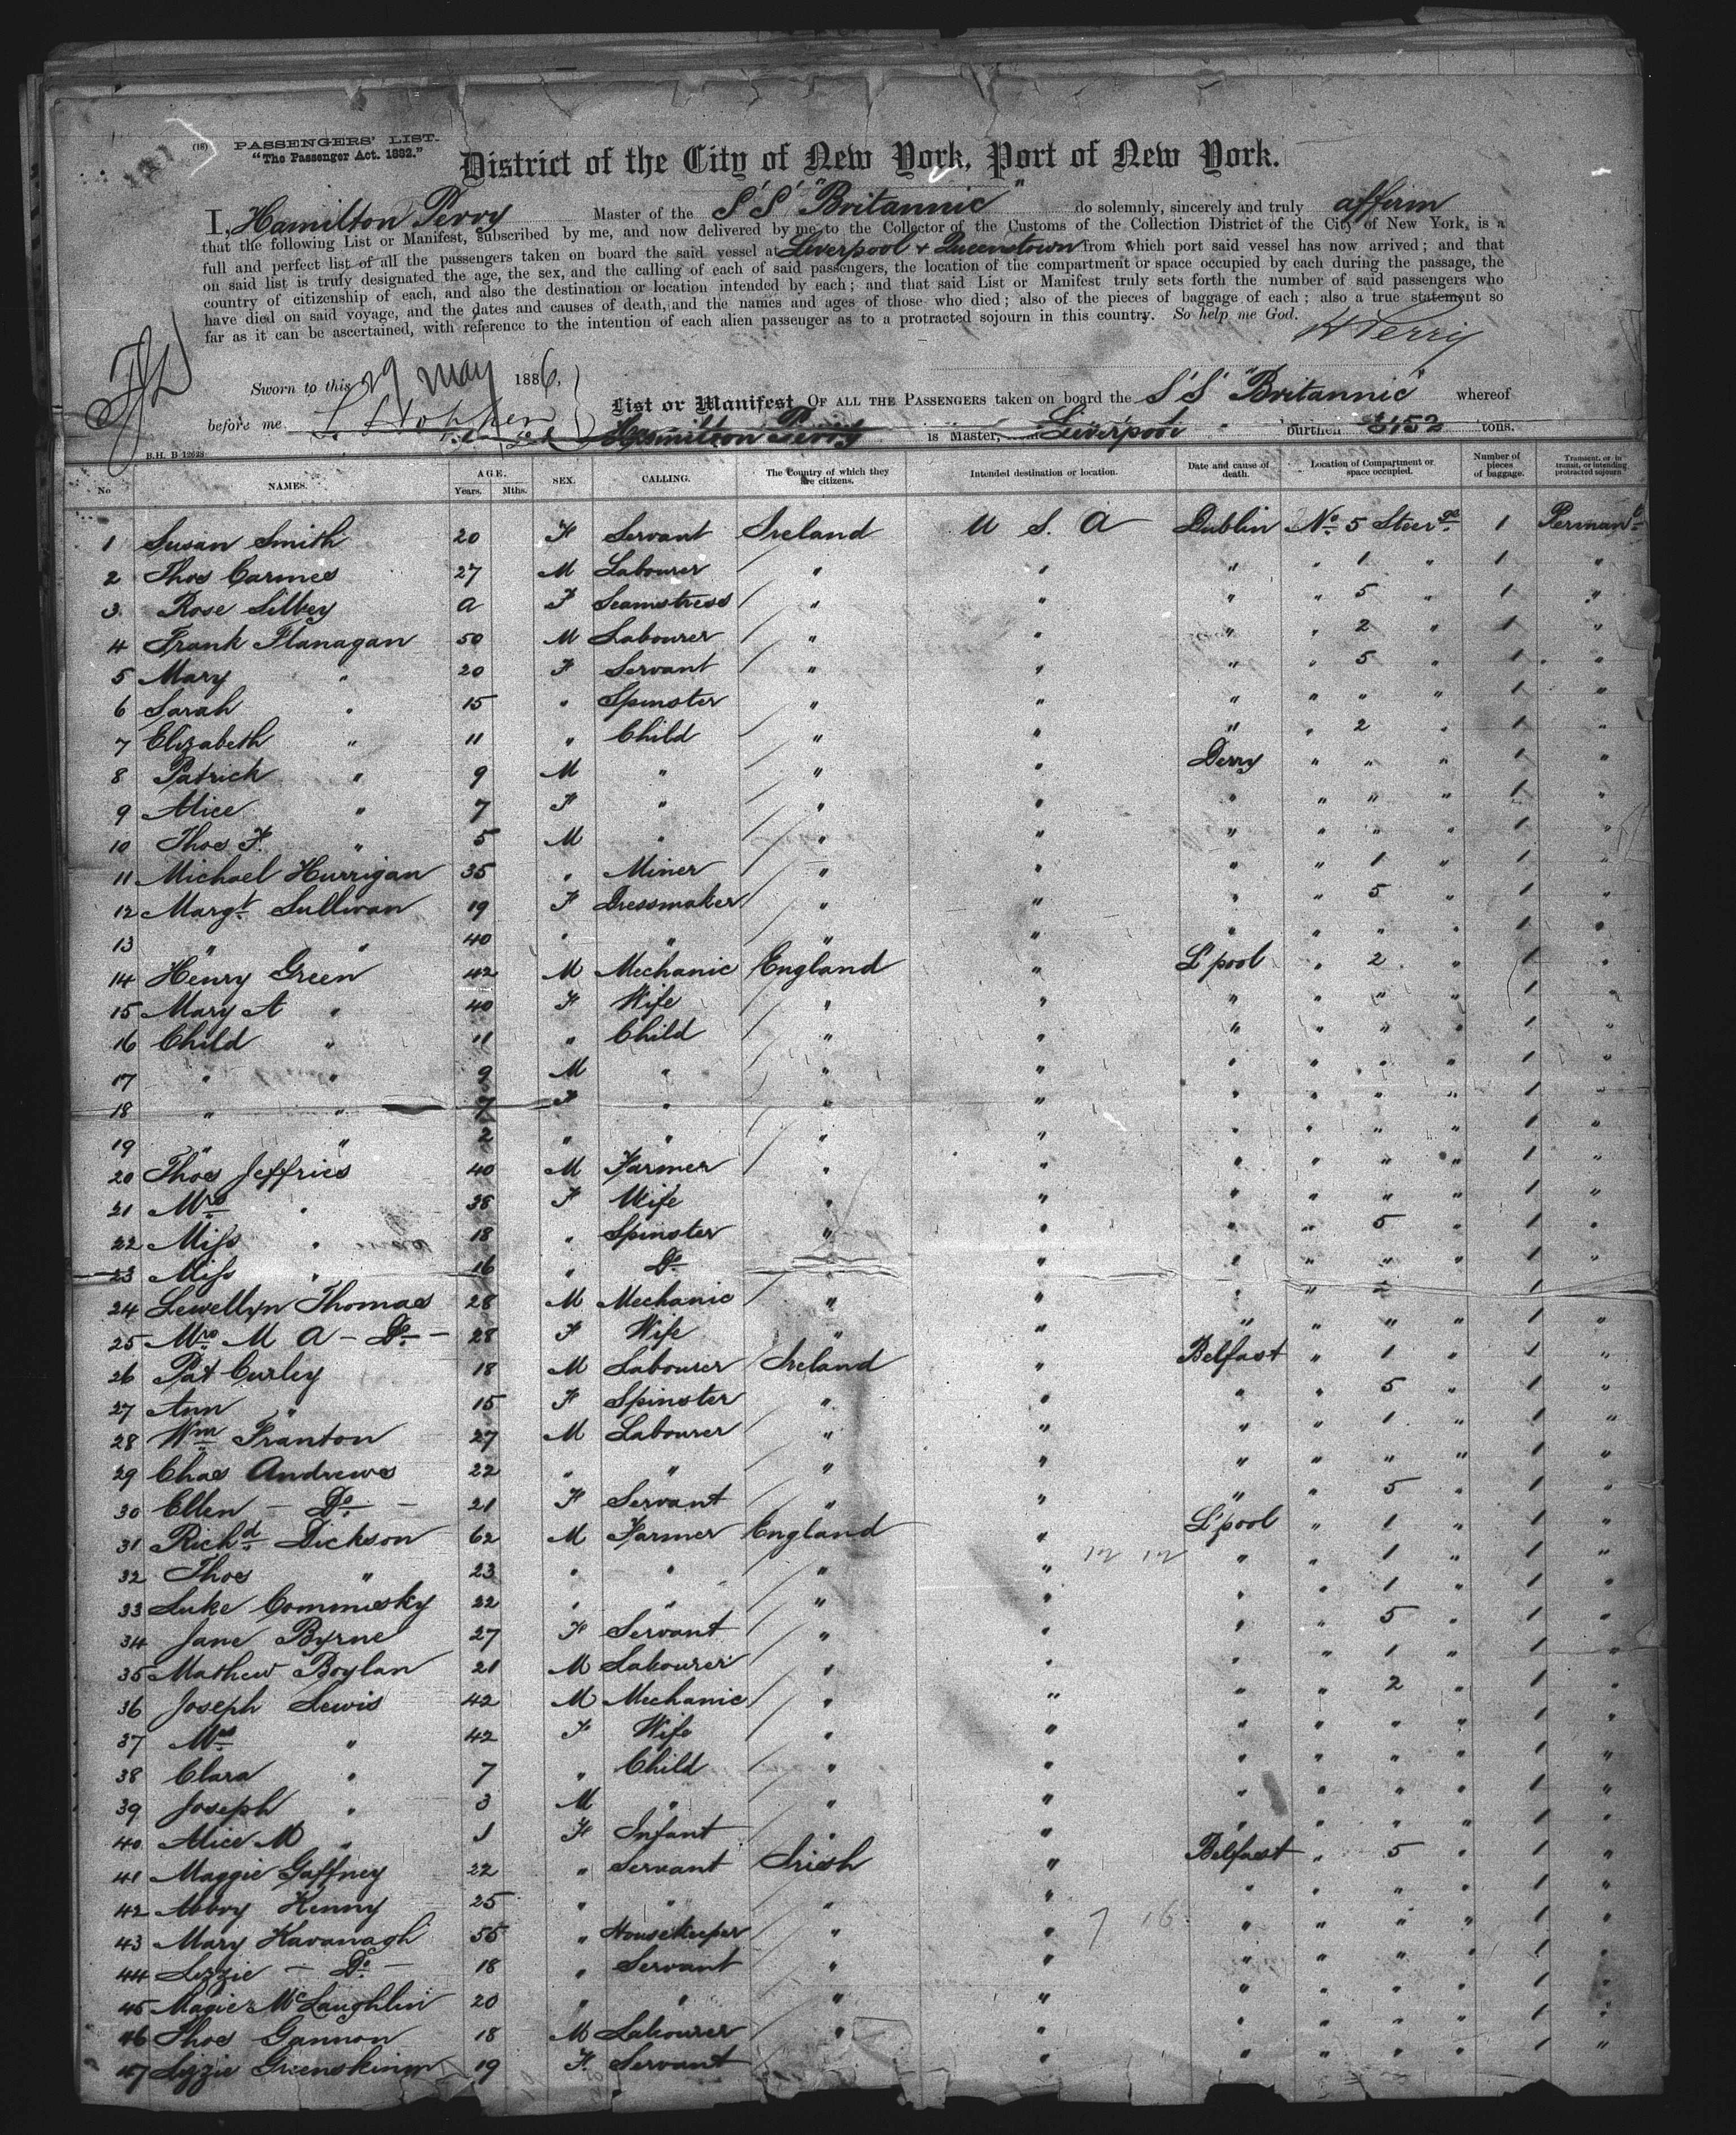 (18) PASSENGERS' LIST.
"The Passenger Act. 1882."
District of the City of New York, Port of New York.
I, Hamilton Perry Master of the S'S' "Britannic" do solemnly, sincerely and truly affirm
that the following List or Manifest, subscribed by me, and now delivered by me to the Collector of the Customs of the Collection District of the City of New York, is a
full and perfect list of all the passengers taken on board the said vessel at Liverpool + Queenstown from which port said vessel has now arrived; and that
on said list is truly designated the age, the sex, and the calling of each of said passengers, the location of the compartment or space occupied by each during the passage, the
country of citizenship of each, and also the destination or location intended by each; and that said List or Manifest truly sets forth the number of said passengers who
have died on said voyage, and the dates and causes of death, and the names and ages of those who died; also of the pieces of baggage of each; also a true statement so
far as it can be ascertained, with reference to the intention of each alien passenger as to a protracted sojourn in this country. So help me God.
H Perry
Sworn to this 29 May 1886,
List or Manifest OF ALL THE PASSENGERS taken on board the S'S' "Britannic" whereof
before me Hamilton Perry is Master, from Liverpool burthen 3152 tons.
B.H. B 12628
No NAMES. AGE. Years. Mths. SEX. CALLING. The Country of which they are citizens. Intended destination or location. Date and cause of death. Location of Compartment or space occupied. Number of pieces of baggage. Transient, or in transit, or intending protracted sojourn
1 Susan Smith 20 F Servant Ireland U S. A Dublin No 5 Steerge 1 Permant
2 Thos Carmes 27 M Labourer / " " " " 1 " 1 "
3. Rose Silbey a F Seamstress / " " " " 5 " 1 "
4 Frank Flanagan 50 M Labourer / " " " " 2 " 1 "
5 Mary " 20 F Servant / " " " " 5 " 1 "
6 Sarah " 15 " Spinster " " " " " " 1 "
7 Elizabeth " 11 " Child / " " " " 2 " 1 "
8 Patrick " 9 M " / " " Derry " " " 1 "
9 Alice " 7 F " / " " " " " " 1 "
10 Thos F. " 5 M " / " " " " " " 1 "
11 Michael Hurrigan 35 " Miner / " " " " 1 " 1 "
12 Margt Sullivan 19 F Dressmaker / " " " " 5 " 1 "
13 " " 40 " " " " " " " " 1 "
14 Henry Green 42 M Mechanic / England " L'pool " 2 " 1 "
15 Mary A " 40 F Wife / " " " " " " 1 "
16 Child " 11 " Child / " " " " " " 1 "
17 " " 9 M " / " " " " " " 1 "
18 " " 7 F " / " " " " " " 1 "
19 " " 2 " " / " " " " " " 1 "
20 Thos Jeffries 40 M Farmer / " " " " " " 1 "
21 Mrs " 38 F Wife " " " " " " 1 "
22 Miss " 18 " Spinster " " " " 5 " 1 "
23 Miss " 16 " Do " " " " " " 1 "
24 Lewellyn Thomas 28 M Mechanic / " " " " 2 " 1 "
25 Mrs M A - Do - 28 F Wife " " " " " " 1 "
26 Pat Curley 18 M Labourer / Ireland " Belfast " 1 " 1 "
27 Ann " 15 F Spinster " " " " 5 " 1 "
28 Wm Franton 27 M Labourer / " " " " 1 " 1 "
29 Chas Andrews 22 " " / " " " " " " 1 "
30 Ellen - Do - 21 F Servant / " " " " 5 " 1 "
31 Richd Dickson 62 M Farmer / England " L'pool " 1 " 1 "
32 Thos " 23 " " / " " " " 1 " 1 "
33 Luke Commisky 22 " " / " " " " 1 " 1 "
34 Jane Byrne 27 F Servant / " " " " 5 " 1 "
35 Mathew Boylan 21 M Labourer / " " " " 1 " 1 "
36 Joseph Lewis 42 M Mechanic / " " " " 2 " 1 "
37 Mrs " 42 F Wife / " " " " " " 1 "
38 Clara " 7 " Child / " " " " " " 1 "
39 Joseph " 3 M " / " " " " " " 1 "
40 Alice M " 1 F Infant " " " " " " 1 "
41 Maggie Gaffney 22 " Servant / Irish " Belfast " 5 " 1 "
42 Abboy Kenny 25 " " / " " " " " " 1 "
43 Mary Kavanagh 55 " Housekeeper / " " 7 16 " " " " 1 "
44 Lizzie - Do - 18 " Servant / " " " " " " 1 "
45 Magie McLaughlin 20 " " / " " " " " " 1 "
46 Thos Gannon 18 M Labourer / " " " " " " 1 "
47 Lizzie 19 F. Servant / " " " " " 1 "